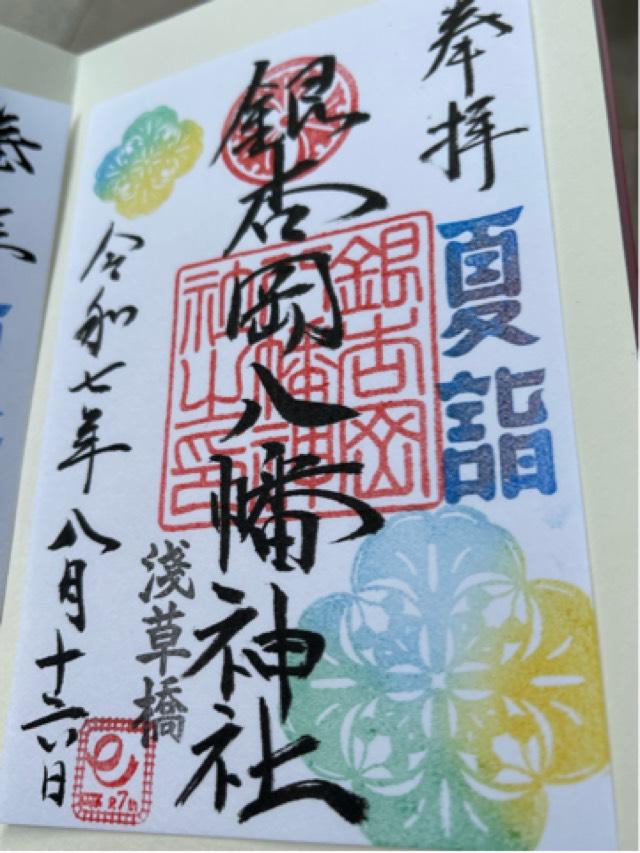 奉拝
夏詣
銀杏岡八幡神社
銀杏岡
八幡神
社之印
浅草橋
令和七年八月十六日